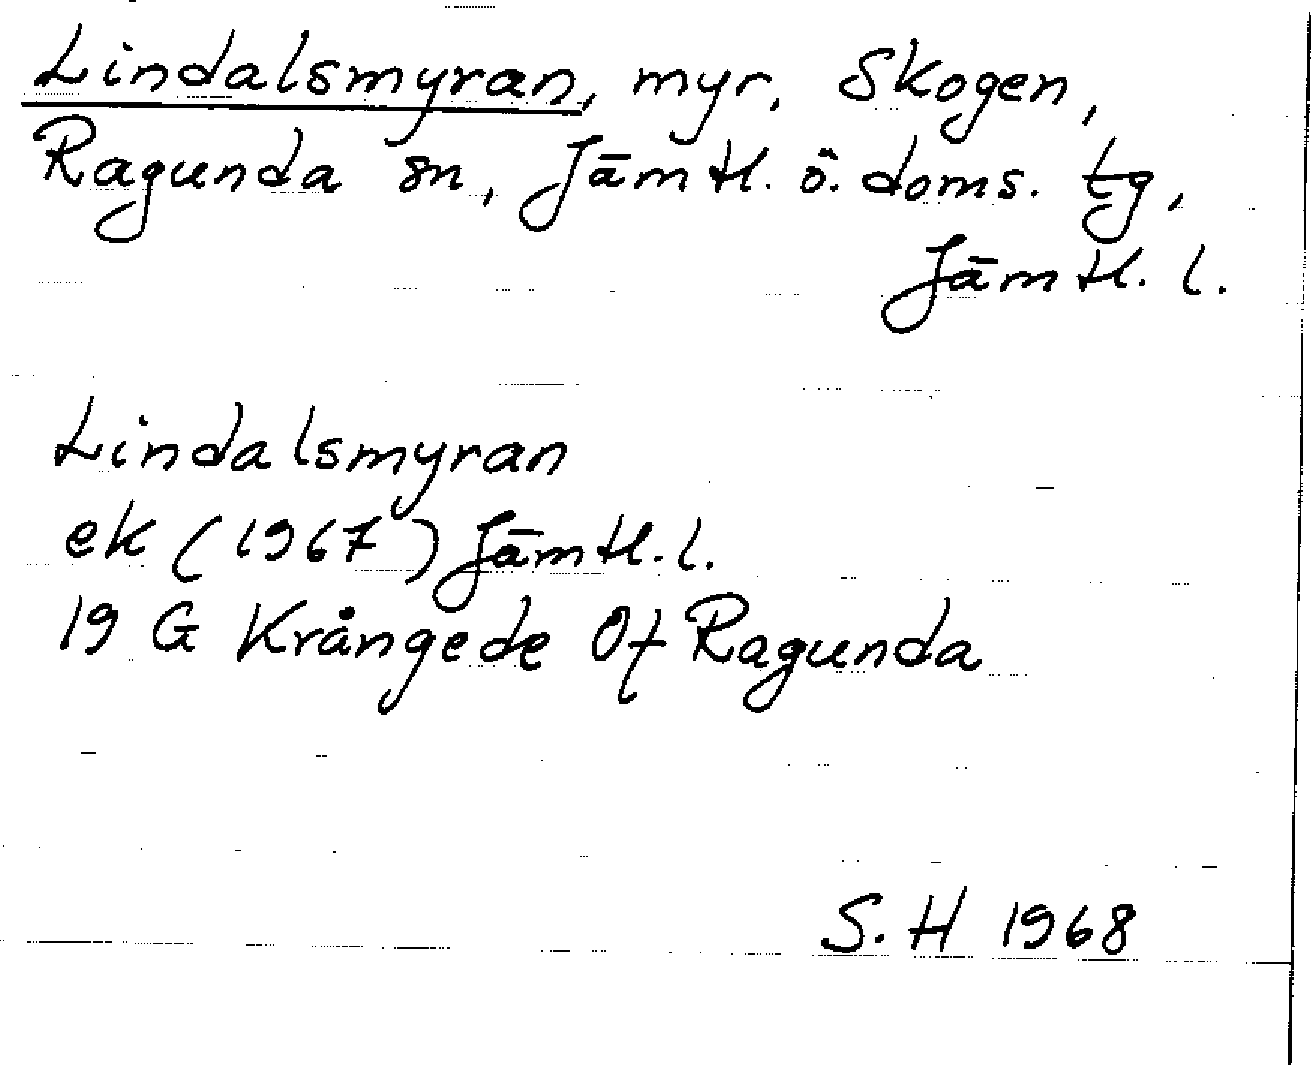 Lindalsmyran, myr, Skogen,
Ragunda sn, Jämtl. ö. doms. tg,
Jämtl. l.
Lindalsmyran
ek (1967) Jämtl. l.
19 G Krångede Of Ragunda
S. H 1968